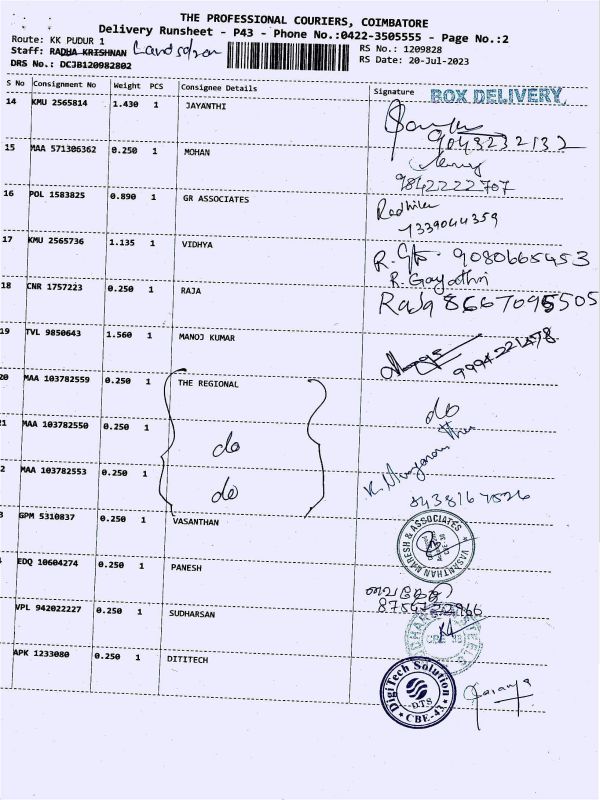 THE PROFESSIONAL COURIERS, COIMBATORE
Delivery Runsheet - P43 - Phone No.:0422-3505555 - Page No.:2
Route: KK PUDUR 1
RS No.: 1209828
Staff: RADHA KRISHNAN
RS Date: 20-Jul-2023
DRS No.: DCJB120982802
S No Consignment No Weight PCS Consignee Details Signature BOX DELIVERY
14 KMU 2565814 1.430 1 JAYANTHI
9043232132
15 MAA 571306362 0.250 1 MOHAN
9842222707
16 POL 1583825 0.890 1 GR ASSOCIATES
7339044359
17 KMU 2565736 1.135 1 VIDHYA R. 9080665453
R. Gayathri
18 CNR 1757223 0.250 1 RAJA Raja 8667095505
19 TVL 9850643 1.560 1 MANOJ KUMAR 9994221478
20 MAA 103782559 0.250 1 THE REGIONAL do
21 MAA 103782550 0.250 1 do
2 MAA 103782553 0.250 1 do
8438167526
3 GPM 5310837 0.250 1 VASANTHAN VASANTHAN MARESH & ASSOCIATES
EDQ 10604274 0.250 1 PANESH
VPL 942022227 0.250 1 SUDHARSAN
APK 1233080 0.250 1 DITITECH DigiTech Solution DTS CBE-43 Saranya